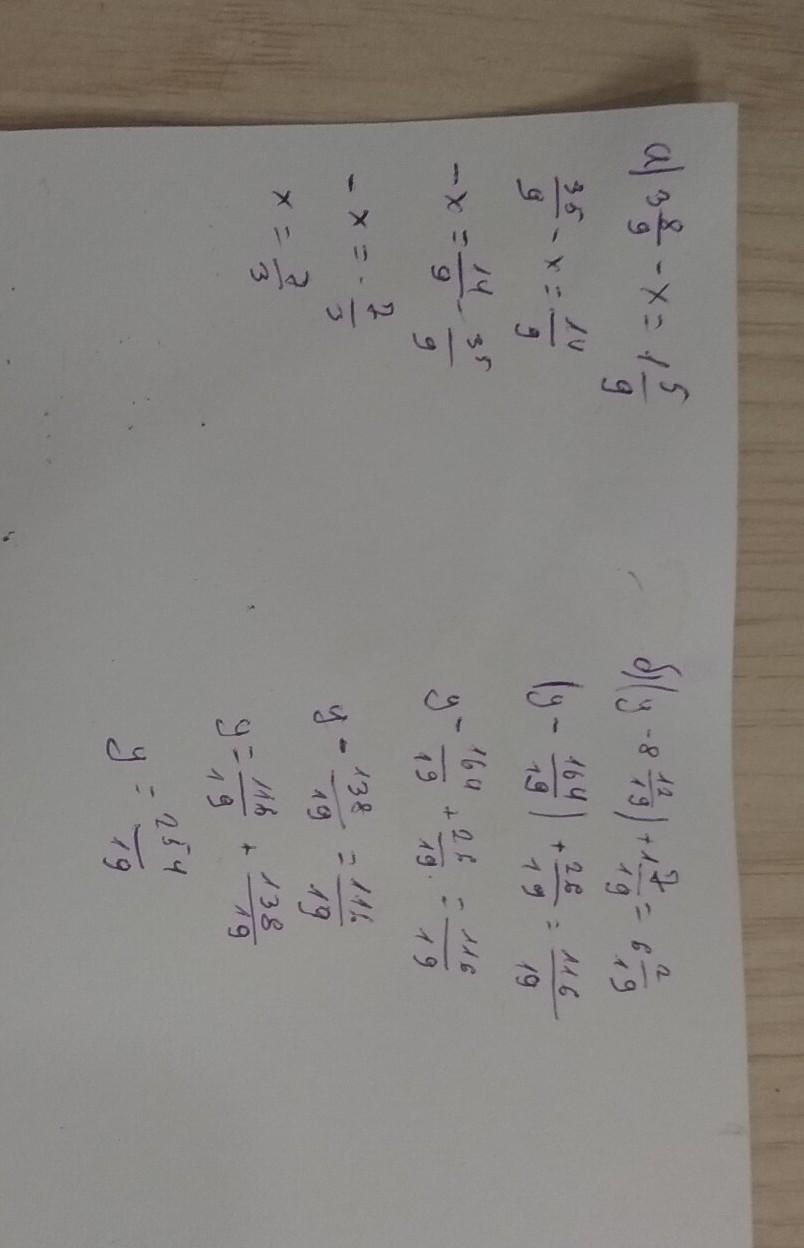 а) 3 8/9 - x = 1 5/9
35/9 - x = 14/9
- x = 14/9 - 35/9
- x = - 7/3
x = 7/3
б) (y - 8 12/19) + 1 7/19 = 6 2/19
(y - 164/19) + 26/19 = 116/19
y - 164/19 + 26/19 = 116/19
y - 138/19 = 116/19
y = 116/19 + 138/19
y = 254/19